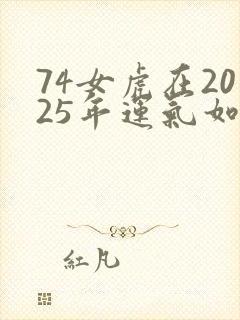 74女虎在20
25年運氣如
紅凡